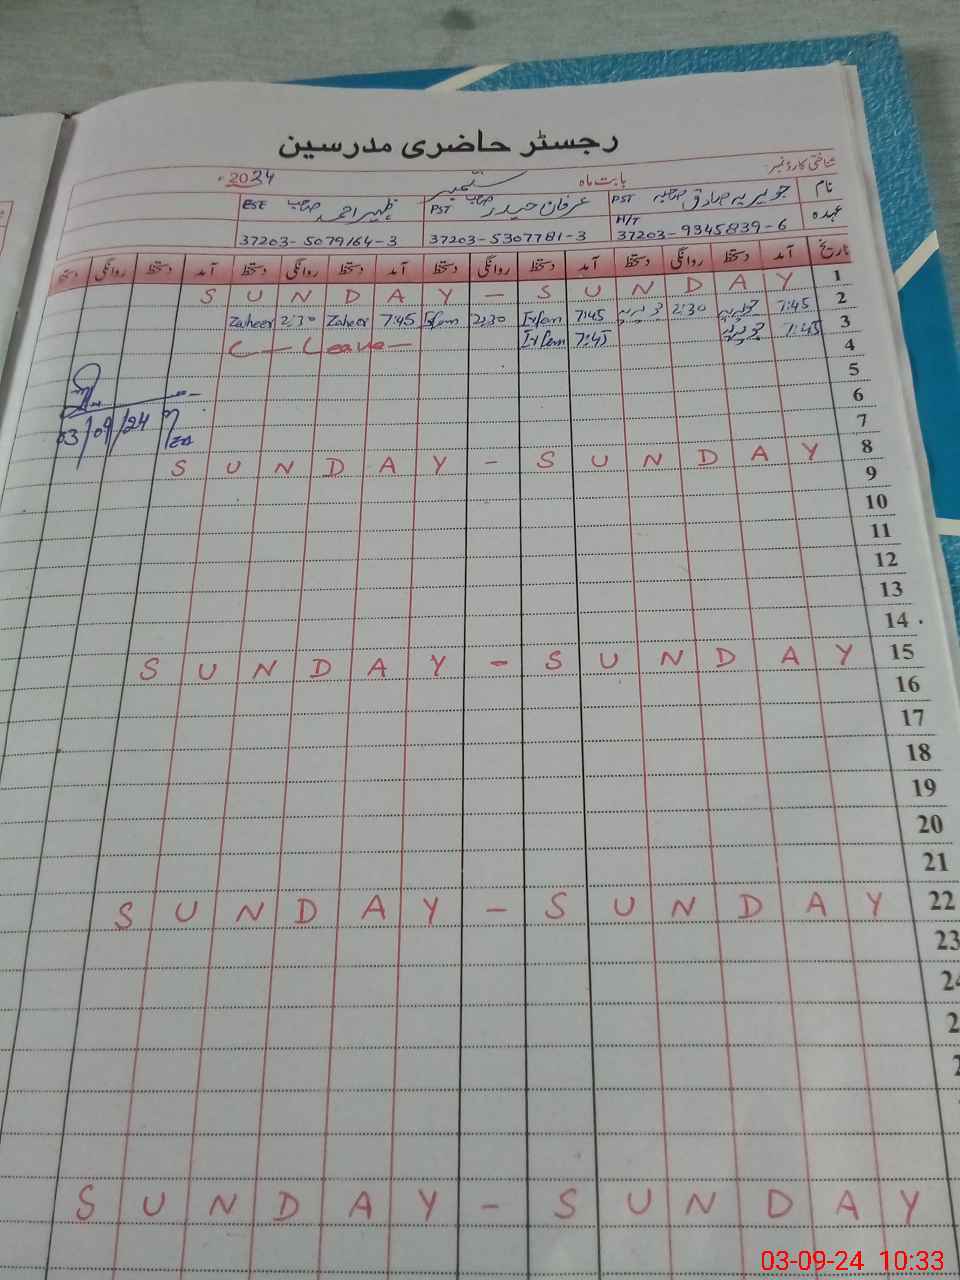 رجسٹر حاضری مدرسین
شناختی کارڈ نمبر
بابت ماہ ستمبر 2024
نام جویریہ صادق صاحبہ PST عرفان حیدر صاحب PST ظہیر احمد صاحب ESE
عہدہ H/T 37203-9345839-6 37203-5307781-3 37203-5079164-3
تاریخ آمد دستخط روانگی دستخط آمد دستخط روانگی دستخط آمد دستخط روانگی دستخط آمد دستخط روانگی دستخط
1 SUNDAY - SUNDAY
2 7:45 جویریہ 2:30 جویریہ 7:45 Irfan 2:30 Irfan 7:45 Zaheer 2:30 Zaheer
3 7:45 جویریہ 7:45 Irfan C - Leave -
4
5
6
03/09/24
7
8 SUNDAY - SUNDAY
9
10
11
12
13
14
15 SUNDAY - SUNDAY
16
17
18
19
20
21
22 SUNDAY - SUNDAY
23
SUNDAY - SUNDAY
03-09-24 10:33